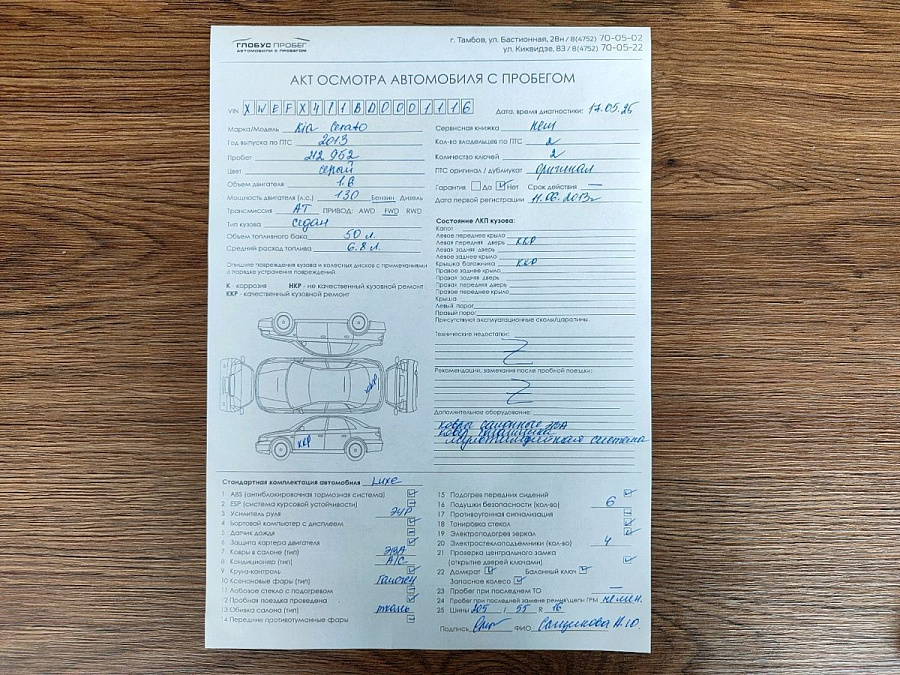 ГЛОБУС ПРОБЕГ
АВТОМОБИЛИ С ПРОБЕГОМ
г. Тамбов, ул. Бастионная, 28н / 8(4752) 70-05-02
ул. Киквидзе, 83 / 8(4752) 70-05-22
АКТ ОСМОТРА АВТОМОБИЛЯ С ПРОБЕГОМ
VIN XWEFX411BD0001116
Дата, время диагностики:
Марка/Модель Kia Cerato
Год выпуска по ПТС 2013
Пробег 212 952
Цвет серый
Объем двигателя 1.8
Мощность двигателя (л.с.) 130 Бензин Дизель
Трансмиссия АТ ПРИВОД: AWD FWD RWD
Тип кузова седан
Объем топливного бака 50 л.
Средний расход топлива 6.8 л.
Опишите повреждения кузова и колесных дисков с примечаниями
о порядке устранения повреждений
К - коррозия НКР - не качественный кузовной ремонт
ККР - качественный кузовной ремонт
ККР
ККР
Сервисная книжка нет
Кол-во владельцев по ПТС 2
Количество ключей 2
ПТС оригинал / дубликат оригинал
Гарантия Да Нет Срок действия —
Дата первой регистрации 11.06.2013г
Состояние ЛКП кузова:
Капот
Левое переднее крыло
Левая передняя дверь ККР
Левая задняя дверь
Левое заднее крыло
Крышка багажника ККР
Правое заднее крыло
Правая задняя дверь
Правая передняя дверь
Правое переднее крыло
Крыша
Левый порог
Правый порог
Присутствуют эксплуатационные сколы/царапины.
Технические недостатки:
Рекомендации, замечания после пробной поездки:
Дополнительное оборудование:
ковры салонные ЭВА
мультимедийная система
Стандартная комплектация автомобиля Luxe
1 ABS (антиблокировочная тормозная система)
2 ESP (система курсовой устойчивости)
3 Усилитель руля ЭУР
4 Бортовой компьютер с дисплеем
5 Датчик дождя
6 Защита картера двигателя
7 Ковры в салоне (тип) ЭВА
8 Кондиционер (тип) A/C
9 Круиз-контроль
10 Ксеноновые фары (тип) Галоген
11 Лобовое стекло с подогревом
12 Пробная поездка проведена
13 Обивка салона (тип) ткань
14 Передние противотуманные фары
15 Подогрев передних сидений
16 Подушки безопасности (кол-во) 6
17 Противоугонная сигнализация
18 Тонировка стекол
19 Электроподогрев зеркал
20 Электростеклоподъемники (кол-во) 4
21 Проверка центрального замка
(открытие дверей ключами)
22 Домкрат Баллонный ключ
Запасное колесо
23 Пробег при последнем ТО —
24 Пробег при последней замене ремня/цепи ГРМ
25 Шины 205 / 55 R 16
Подпись ФИО